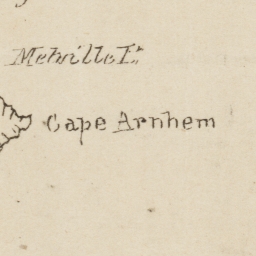 Melville Is.
Cape Arnhem